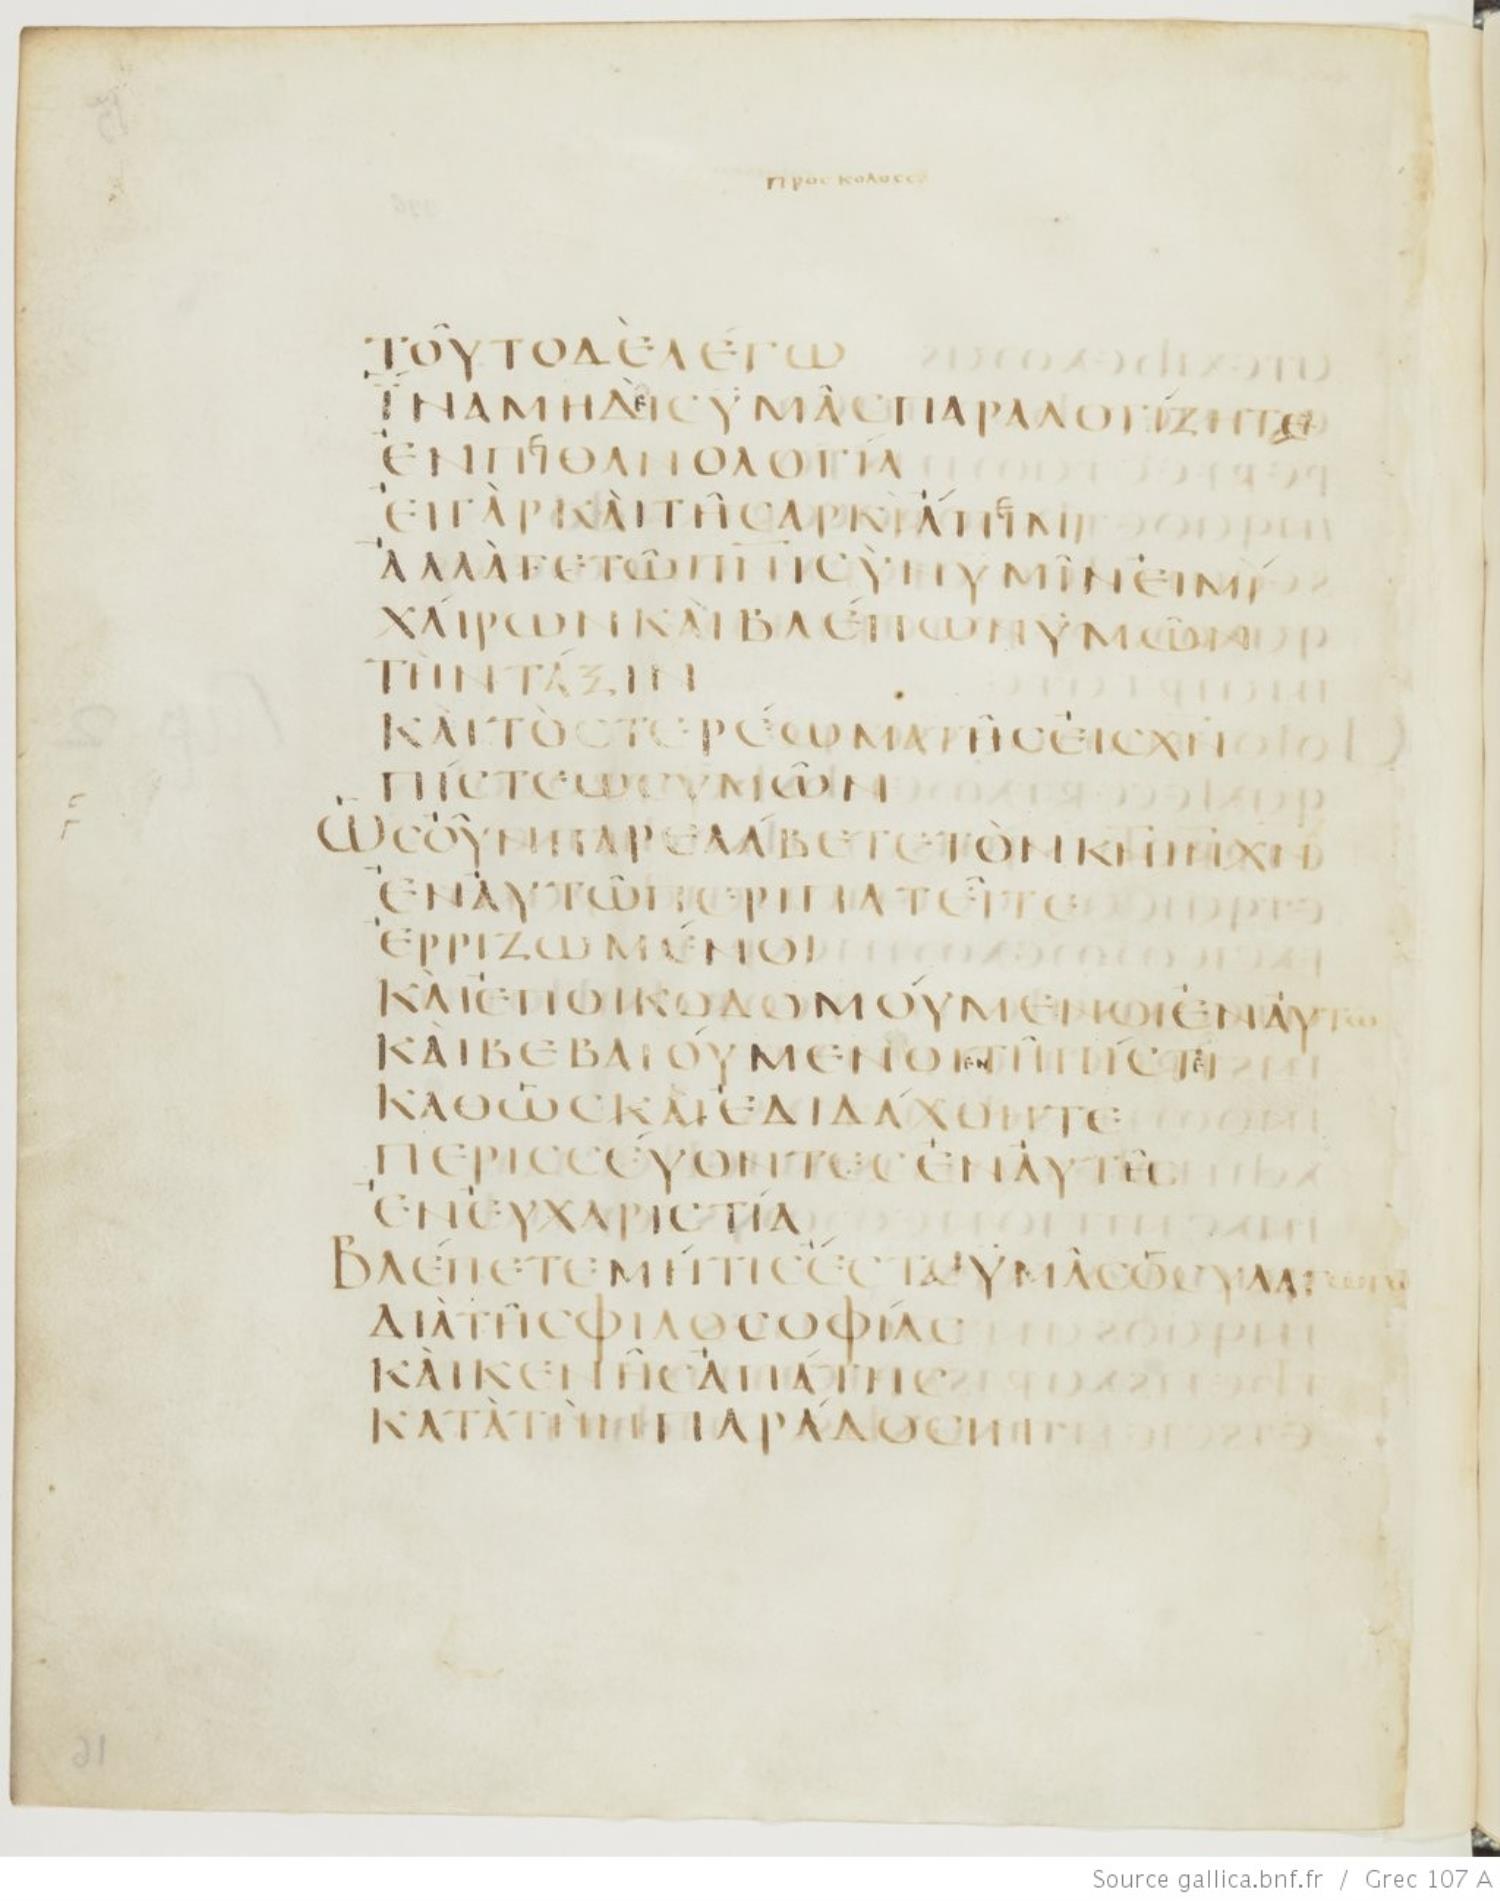 προς κολοσσ
ΤΟΥΤΟ ΔΕ ΛΕΓΩ
ΙΝΑ ΜΗΔΙC ΥΜΑC ΠΑΡΑΛΟΓΙΖΗΤΕ
ΕΝ ΠΙΘΑΝΟΛΟΓΙΑ
ΕΙ ΓΑΡ ΚΑΙ ΤΗ CΑΡΚΙ ΑΠΙΜΙ
ΑΛΛΑ ΓΕ ΤΩ ΠΝΙ CΥΝ ΥΜΙΝ ΕΙΜΙ
ΧΑΙΡΩΝ ΚΑΙ ΒΛΕΠΩΝ ΥΜΩΝ
ΤΗΝ ΤΑΞΙΝ
ΚΑΙ ΤΟ CΤΕΡΕΩΜΑ ΤΗC ΕΙC ΧΝ
ΠΙCΤΕΩC ΥΜΩΝ
ΩC ΟΥΝ ΠΑΡΕΛΑΒΕΤΕ ΤΟΝ ΚΝ ΙΗΝ ΧΝ
ΕΝ ΑΥΤΩ ΠΕΡΙΠΑΤΕΙΤΕ
ΕΡΡΙΖΩΜΕΝΟΙ
ΚΑΙ ΕΠΟΙΚΟΔΟΜΟΥΜΕΝΟΙ ΕΝ ΑΥΤΩ
ΚΑΙ ΒΕΒΑΙΟΥΜΕΝΟΙ ΕΝ ΤΗ ΠΙCΤΕΙ
ΚΑΘΩC ΚΑΙ ΕΔΙΔΑΧΘΗΤΕ
ΠΕΡΙCCΕΥΟΝΤΕC ΕΝ ΑΥΤΗ
ΕΝ ΕΥΧΑΡΙCΤΙΑ
ΒΛΕΠΕΤΕ ΜΗ ΤΙC ΕCΤΑΙ ΥΜΑC Ο CΥΛΑΓΩΓΩΝ
ΔΙΑ ΤΗC ΦΙΛΟCΟΦΙΑC
ΚΑΙ ΚΕΝΗC ΑΠΑΤΗC
ΚΑΤΑ ΤΗΝ ΠΑΡΑΔΟCΙΝ
16
Source gallica.bnf.fr / Grec 107 A